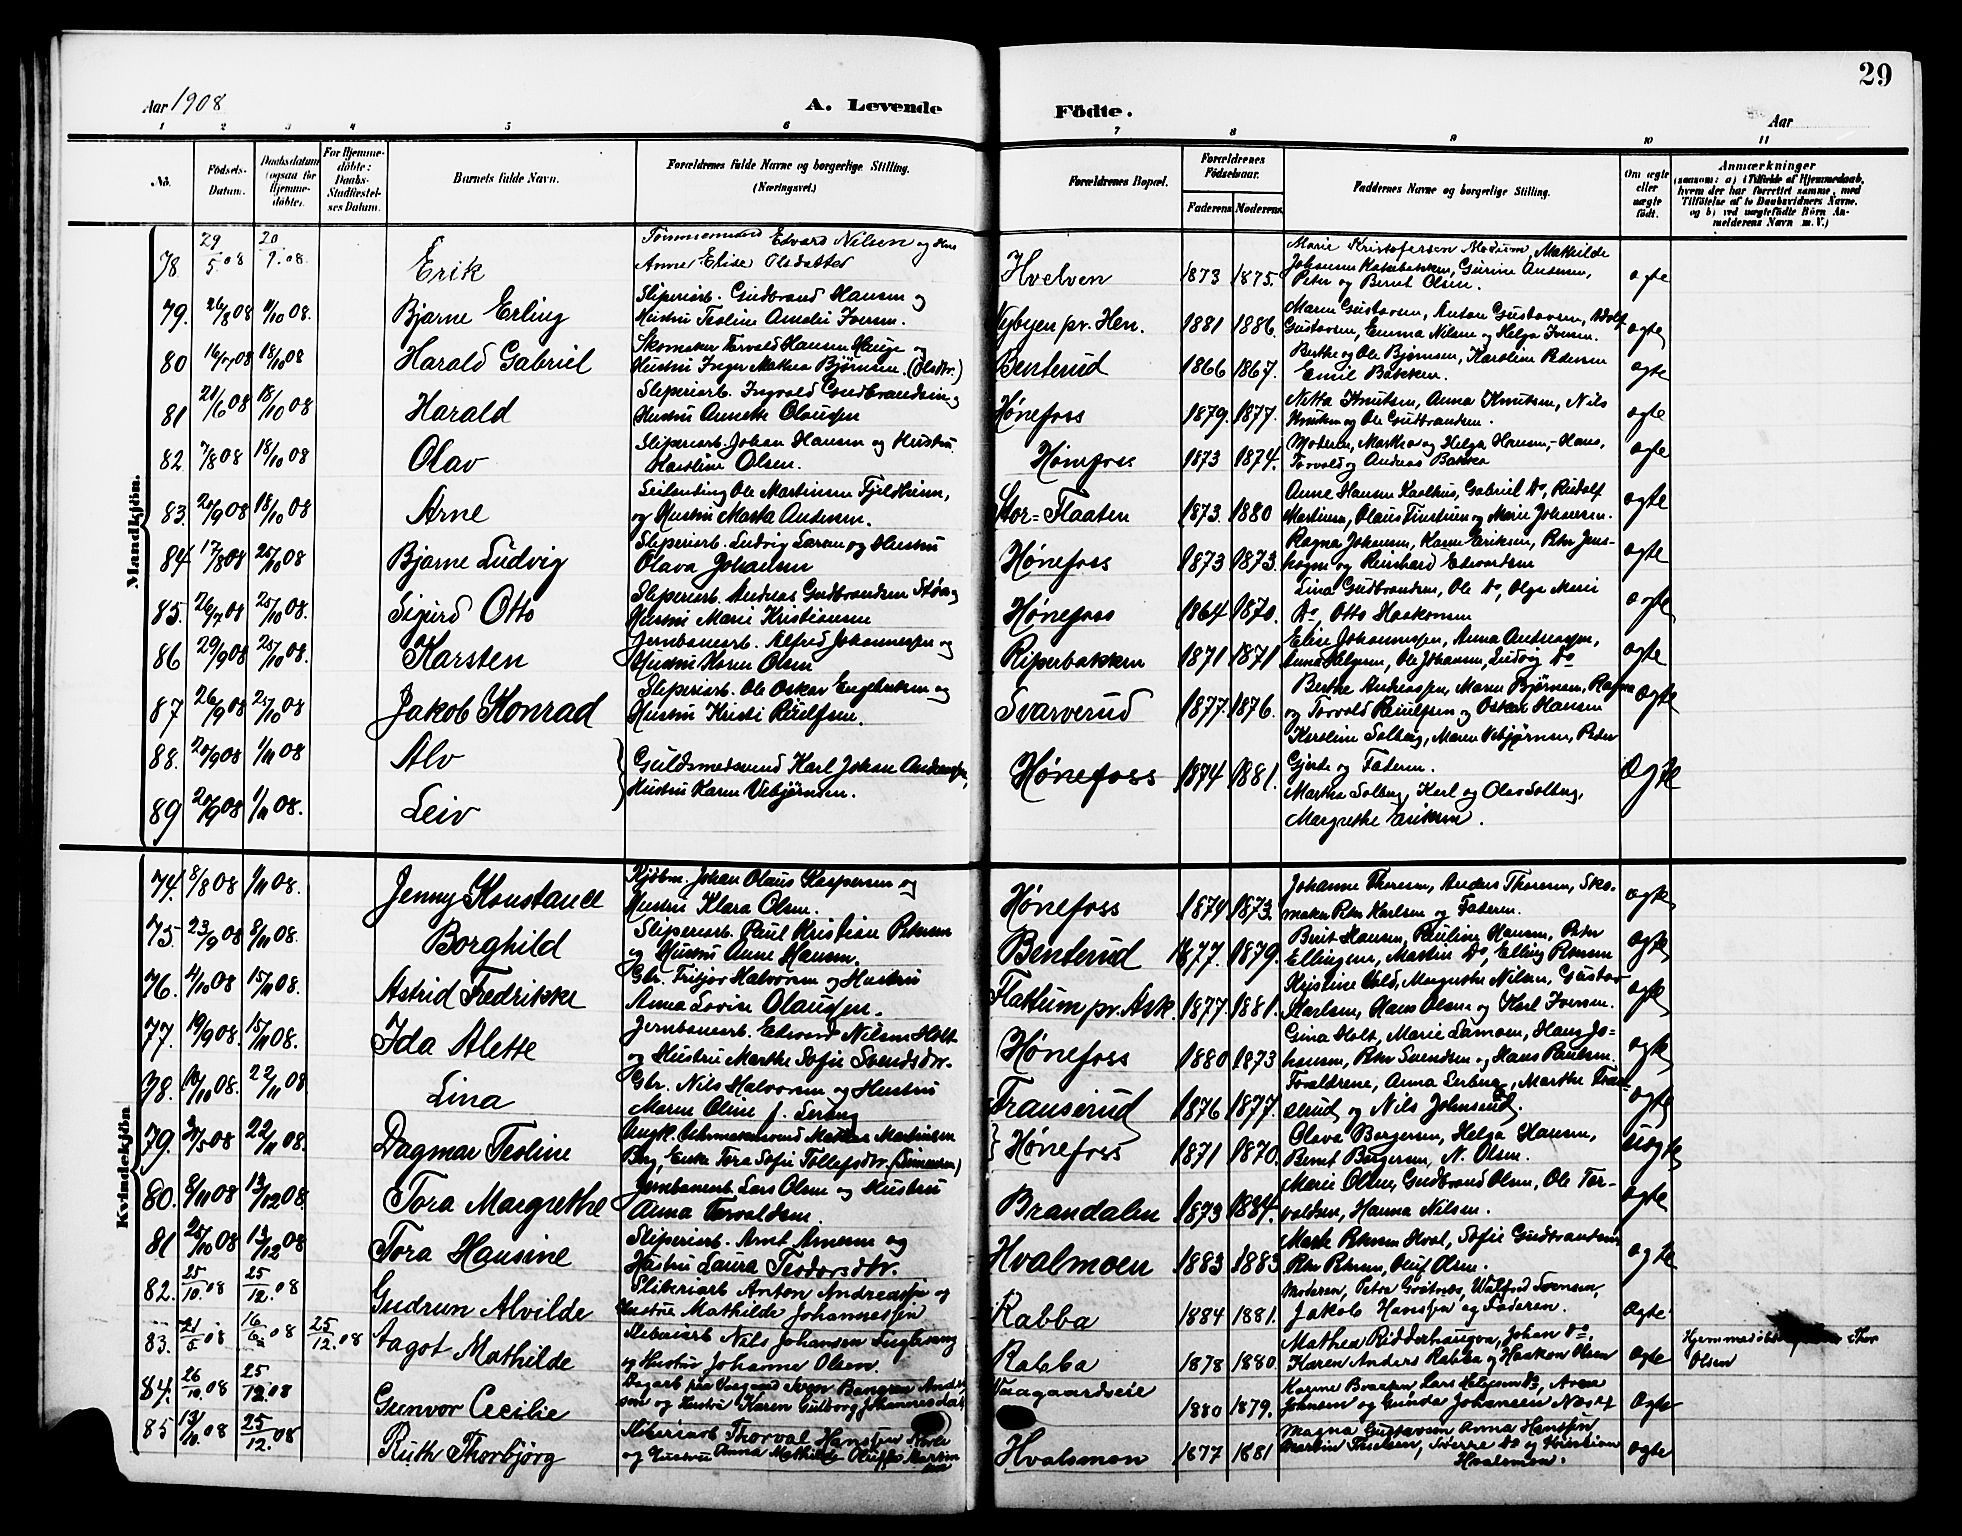 29
Aar 1908
A. Levende Födte.
Aar
1 2 3 4 5 6 7 8 9 10 11
No.
Födsels-Datum.
Daabsdatum (ogsaa for Hjemme-döbte).
For Hjemme-döbte: Daabs-Stadfæstel-ses Datum.
Barnets fulde Navn.
Forældrenes fulde Navne og borgerlige Stilling. (Næringsvei.)
Forældrenes Bopæl.
Forældrenes Födselsaar.
Faderens Moderens
Faddernes Navne og borgerlige Stilling.
Om ægte eller uægte født.
Anmærkninger
(saasom: a) i Tilfælde af Hjemmedaab, hvem der har forrettet samme, med Tilföielse af to Daabsvidners Navne, og b) ved uægtefödte Börn An-melderens Navn m. V.)
Mandkjön.
78 29/5 08 20/9 08. Erik Tømmermand Edvard Nilsen og Hus Anne Elise Olsdatter Hvelven 1873 1875. Marie Kristofersen Modum, Mathilde Johansen, Gurine Andersen, Peter og Bernt Olsen. ægte
79. 26/8 08 4/10 08. Bjarne Erling Sliperiarb. Gudbrand Hansen og Hustru Teoline Amalie Iversen. Nybyen pr. Hen. 1881 1886. Maren Gustavsen, Anton Gustavsen, Adolf Gustavsen, Emma Nilsen og Helga Iversen. ægte
80 16/7 08 18/10 08 Harald Gabriel Skomaker Torvald Hansen Hauge og Hustru Inger Mathea Bjørnsen (Olsdtr.) Benterud 1866 1867. Berthe og Ole Bjørnsen, Karoline Pedersen Emil Bakken. ægte
81 21/6 08 18/10 08 Harald Sliperiarb. Ingvald Gudbrandsen og Hustru Annette Olausen Hønefoss 1879. 1877. Netta Knutsen, Anna Knutsen, Nils Knutsen og Ole Gudbrandsen. ægte
82 7/8 08 18/10 08 Olav Sliperiarb. Johan Hansen og Hustru Karoline Olsen. Hønefoss 1873 1874. Moderen, Martha og Helga Hansen, Hans, Torvald og Andreas Bakke ægte
83. 20/9 08 18/10 08 Arne Ole Martinsen Fjeldheim, og Hustru Marta Andersen. Stor=Flaaten 1873. 1880 Anne Hansen Kaalhus, Gabriel Do, Rudolf Martinsen, Olaus og Marie Johnsen. ægte
84 17/8 08 25/10 08 Bjarne Ludvig Sliperiarb. Ludvig Larsen og Hustru Olava Johansen Hønefoss 1873 1873. Ragna Johansen, Karen Eriksen, Peter Jenshagen og Reinhard Edvardsen ægte
85. 26/7 08 25/10 08. Sigurd Otto Sliperiarb. Andreas Gudbrandsen og Hustru Marie Kristiansen Hønefoss 1864 1870. Lina Gudbrandsen, Ole Do, Olga Marie Do, Otto Haakonsen ægte
86 29/9 08 25/10 08. Karsten Jernbanearb. Alfred Johannessen og Hustru Karen Olsen Riperbakken 1871 1871 Elise Johannessen, Anna Andreassen, Anna Helgesen, Ole Johansen, Ludvig Do ægte
87 26/9 08 25/10 08 Jakob Konrad Sliperiarb. Ole Oskar Engebretsen og Hustru Kristi Paulsen. Svarverud 1877. 1876. Berthe Andreassen, Maren Bjørnsen, Ragna og Torvald Paulsen og Oskar Hansen ægte
88. 20/9 08 1/11 08 Alv Guldsmedsvend Karl Johan Andreassen, Hustru Karen Vebjørnsen. Hønefoss 1874 1881. Karoline Solberg, Maren Vebjørnsen, Peter Gjerde og Faderen. ægte
89 20/9 08 1/11 08. Leiv Martha Solberg, Karl og Olav Solberg, Margrethe Eriksen.
Kvindekjön
74. 8/8 08 1/11 08. Jenny Konstance Kjøbm. Johan Olaus Kaspersen og Hustru Klara Olsen. Hønefoss 1874 1873. Johanne Thoresen, Anders Thoresen, Sko-maker Peter Karlsen og Faderen. ægte
75. 23/9 08 8/11 08. Borghild Sliperiarb. Paul Kristian Petersen og Hustru Anne Hansen. Benterud 1877. 1879. Berit Hansen, Pauline Hansen, Peter Ellingsen, Martin Do, Elling Petersen ægte
76. 4/10 08 15/11 08. Astrid Fredrikke Gbr. Fritjof Halvorsen og Hustru Anna Lovise Olausen. Flattum pr. Ask. 1877. 1881. Kristine Vold, Margrethe Nilsen, Gustav Karlsen, Hans Olsen og Karl Iversen. ægte
77. 19/9 08. 15/11 08. Ida Alette Jernbanearb. Edvard Nilsen Holt og Hustru Marthe Sofie Svendsdtr. Hønefoss 1880 1873 Gina Holt, Marie Lamoen, Hans Jo-hansen, Peter Svendsen og Hans Paulsen. ægte
78. 19/10 08. 22/11 08 Lina Gbr. Nils Halvorsen og Hustru Maren Oline f. Lerberg Transerud 1876 1877. Forældrene, Anna Lerberg, Marthe Trans-erud og Nils Johnsrud. ægte
79. 30/5 08 22/11 08. Dagmar Teoline Ungk. Urmakersvend Mathias Martinsen Berg, Enke Tora Sofie Tollefsdtr. (Simensen) Hønefoss 1871 1870. Olava Borgersen, Helga Hansen, Bernt Borgersen, N. Olsen. uægte
80. 8/11 08 13/12 08. Tora Margrethe Jernbanearb. Lars Olsen og Hustru Anna Torvaldsen Brandalen 1873 1884. Marie Olsen, Gudbrand Olsen, Ole Tor-valdsen, Hanna Nilsen. ægte
81 25/10 08 13/12 08 Tora Hansine Sliperiarb. Arnt Arnesen og Hustru Laura Teodorsdtr. Hvalmoen 1883 1883 Marte Petersen Hval, Sofie Gudbrandsen Peter Petersen, Oluf Olsen. ægte
82. 25/10. 08 25/12. 08 Gudrun Alvilde Sliberiarb Anton Andreassen og Hustru Mathilde Johannessen Rabba 1884 1881. Moderen, Petra Grøtnæs, Walfrid Svensen, Jakob Hanssen og Faderen. ægte
83. 21/5 08 16/6 08 25/12. 08 Aagot Mathilde Sliberiarb Nils Johansen Fuglevang og Hustru Johanne Olsen. Rabba 1878 1880. Mathea Ridderhaugen, Johan Do, Karen Anders Rabba og Haakon Olsen ægte Hjemmedøbt Thor Olsen
84. 26/10 08 25/12 08 Gunvor Cecilie Dagarb paa Vaagaard Sven Bengren og Hustru Karen Gulborg Johannesdat Vaagaardveie 1880 1879. Karine Braaten, Lars Helgesen Do, Anna Johnsen og Gunda Johansen Næss ægte
85 13/10. 08 25/12. 08 Ruth Thorbjørg Sliberiarb Thorval Hanssen og Hustru Anna Mathilde Hvalsmon 1877 1881 Magna Gustavson Anna Hanssen Martin Thielsen, Sverre Do og Kristian Hvalsmon. ægte